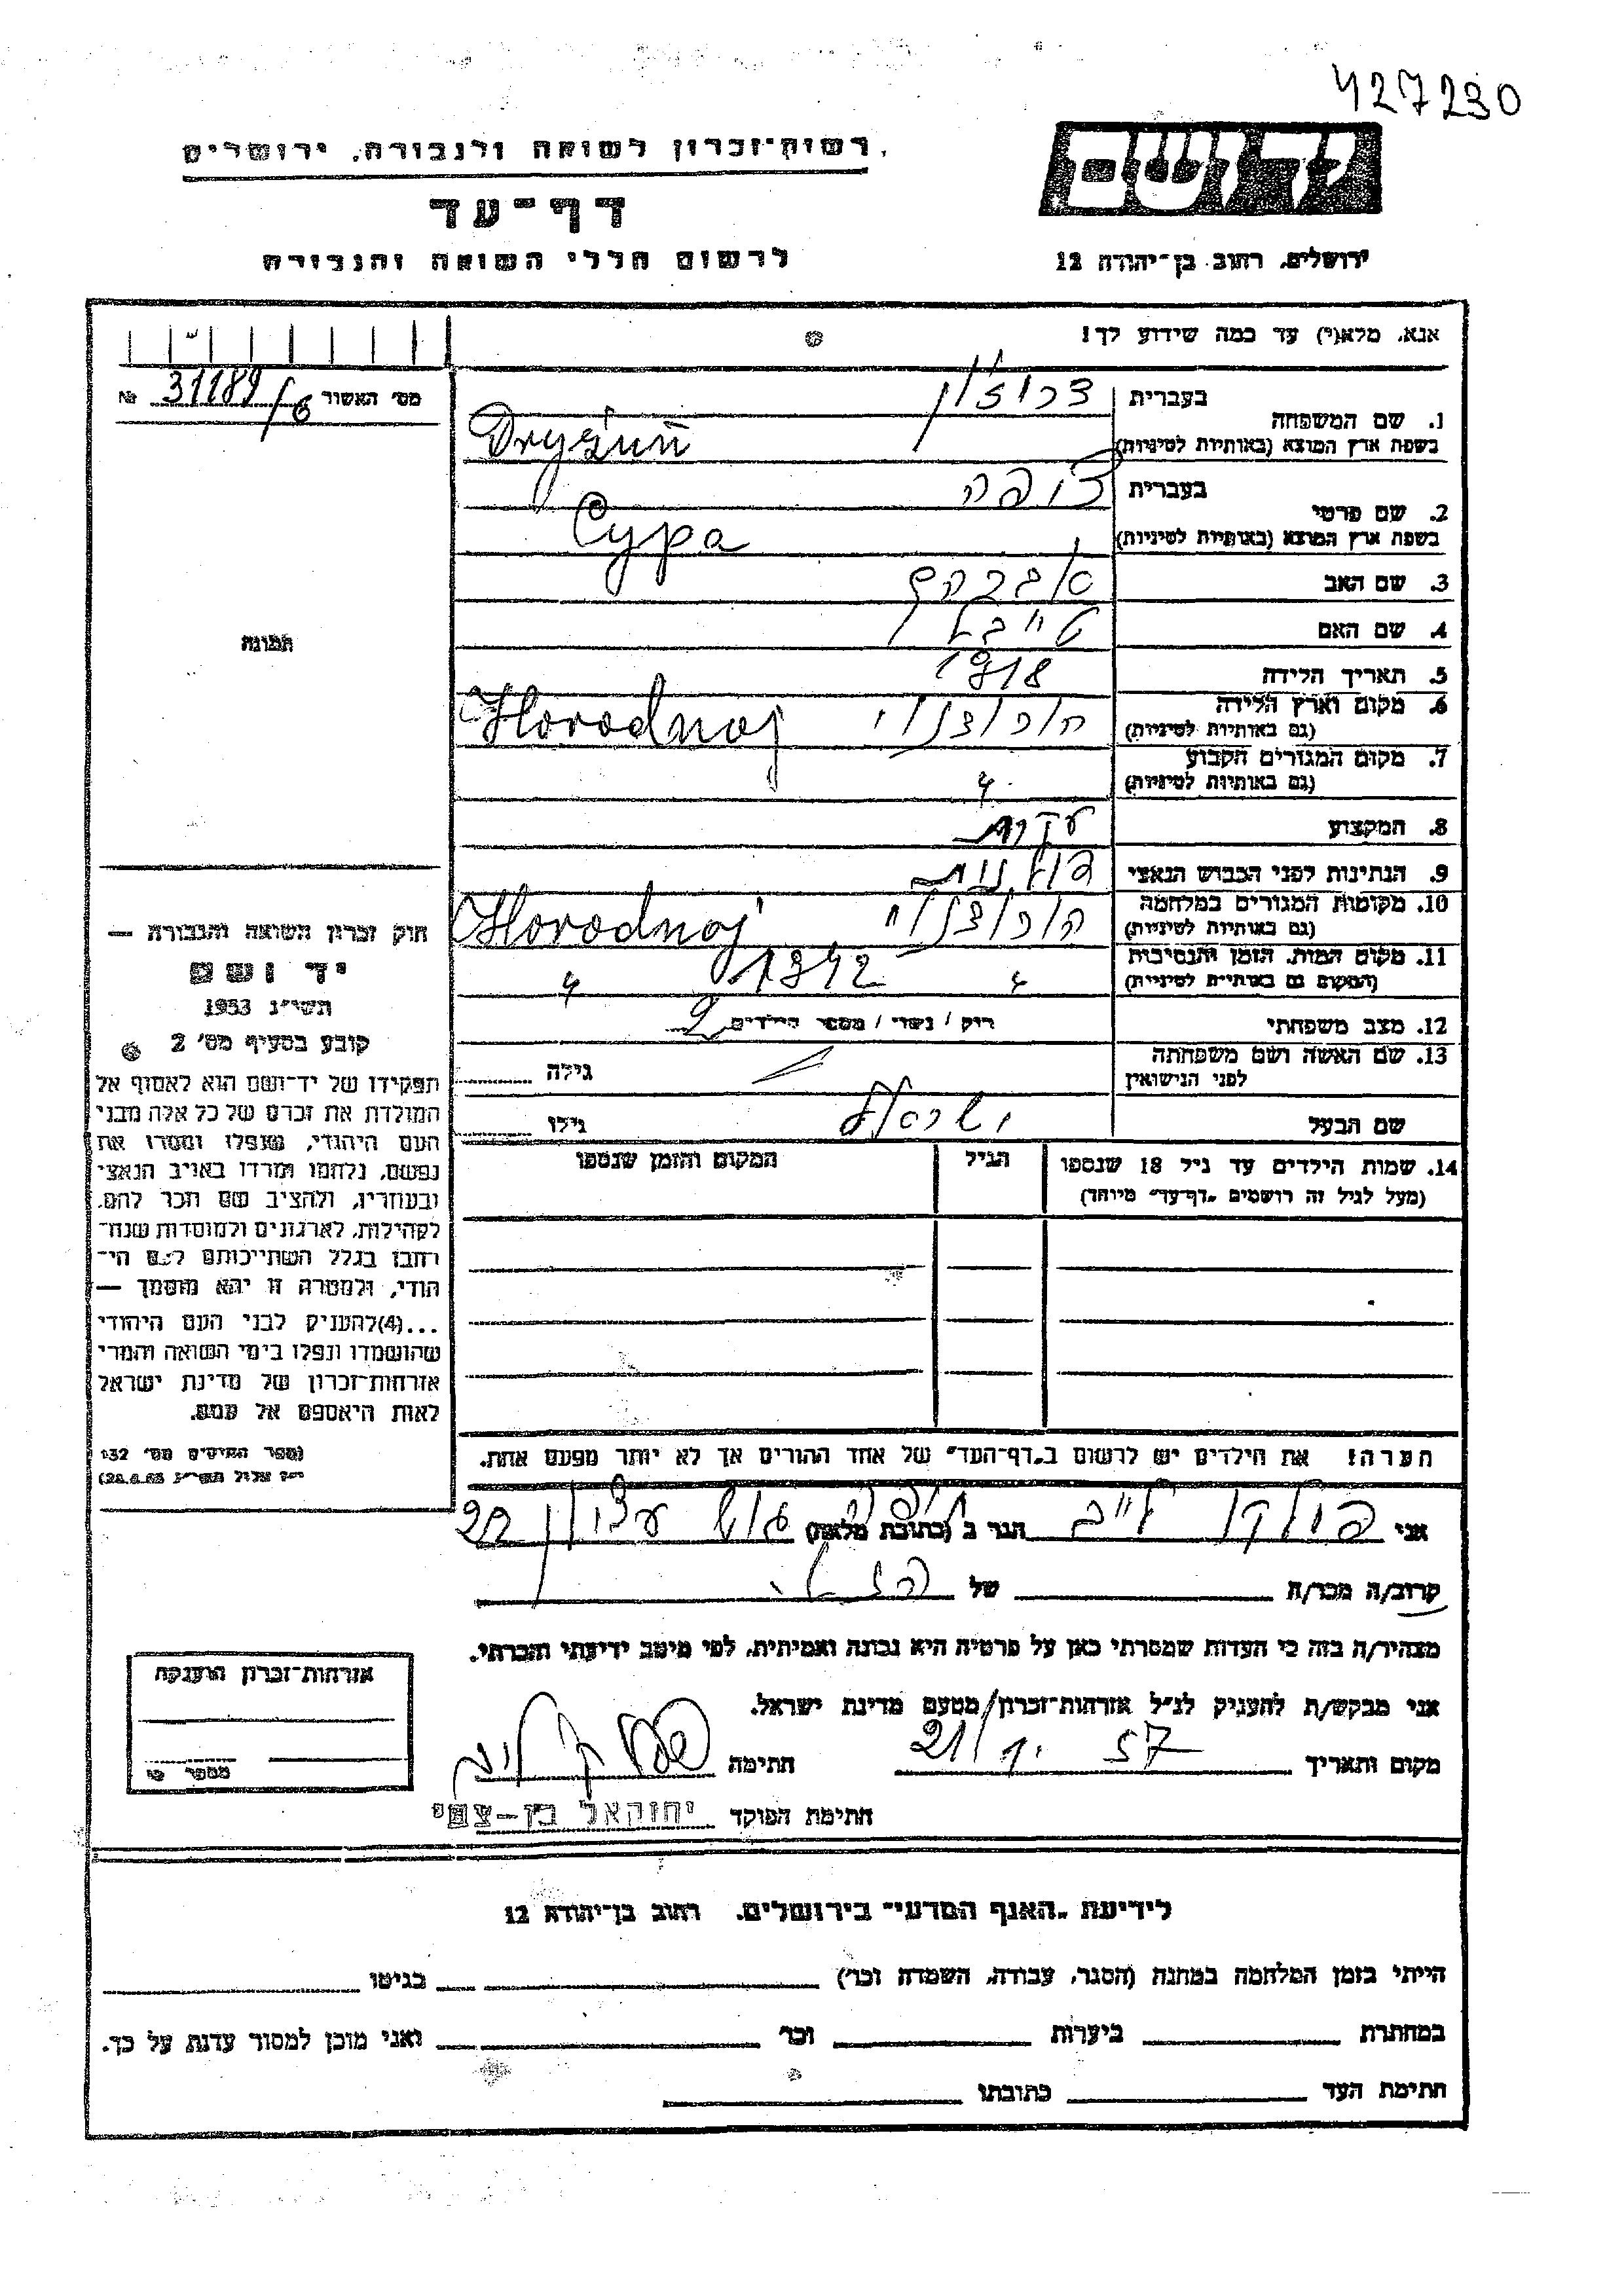 427230
רשות־זכרון לשואה ולגבורה, ירושלים
יד ושם
דף־עד
לרשום חללי השואה והגבורה
ירושלים, רחוב בן־יהודה 12
אנא, מלא(י) עד כמה שידוע לך!
מס׳ האשור 31189/6 №
1. שם המשפחה
בעברית
בשפת ארץ המוצא (באותיות לטיניות) Dryżuń
2. שם פרטי
בעברית ציפה
בשפת ארץ המוצא (באותיות לטיניות) Cypa
3. שם האב אברהם
4. שם האם טייבל
5. תאריך הלידה 1918
6. מקום וארץ הלידה הורודנוי Horodnoj
(גם באותיות לטיניות)
7. מקום המגורים הקבוע
(גם באותיות לטיניות) 4
8. המקצוע
9. הנתינות לפני הכבוש הנאצי פולנית
10. מקומות המגורים במלחמה הורודנוי Horodnoj
(גם באותיות לטיניות)
11. מקום המות, הזמן והנסיבות 1942
(המקום גם באותיות לטיניות)
12. מצב משפחתי רוק / נשוי / מספר הילדים 2
13. שם האשה ושם משפחתה
לפני הנישואין גילה
שם הבעל ישראל גילו
14. שמות הילדים עד גיל 18 שנספו הגיל המקום והזמן שנספו
(מעל לגיל זה רושמים „דף־עד״ מיוחד)
תמונה
חוק זכרון השואה והגבורה —
יד ושם
תשי״ג 1953
קובע בסעיף מס׳ 2
תפקידו של יד־ושם הוא לאסוף אל
המולדת את זכרם של כל אלה מבני
העם היהודי, שנפלו ומסרו את
נפשם, נלחמו ומרדו באויב הנאצי
ובעוזריו, ולהציב שם וזכר להם,
לקהילות, לארגונים ולמוסדות שנח־
רבו בגלל השתייכותם לעם הי־
הודי, ולמטרה זו יהא מוסמך —
...(4) להעניק לבני העם היהודי
שהושמדו ונפלו בימי השואה והמרי
אזרחות־זכרון של מדינת ישראל
לאות היאספם אל עמם.
(ספר החוקים מס׳ 132
י״ז אלול תשי״ג 28.8.53)
הערה! את הילדים יש לרשום ב„דף־העד״ של אחד ההורים אך לא יותר מפעם אחת.
אני הגר ב (כתובת מלאה) 22
קרוב/ה מכר/ה של
מצהיר/ה בזה כי העדות שמסרתי כאן על פרטיה היא נכונה ואמיתית, לפי מיטב ידיעתי והכרתי.
אני מבקש/ת להעניק לנ״ל אזרחות־זכרון/מטעם מדינת ישראל.
מקום ותאריך 21/1. 57 חתימה
חתימת הפוקד יחזקאל בן-צמי
אזרחות־זכרון הוענקה
מספר
לידיעת „האגף המדעי״ בירושלים, רחוב בן־יהודה 12
הייתי בזמן המלחמה במחנה (הסגר, עבודה, השמדה וכו׳) בגיטו
במחתרת ביערות וכו׳ ואני מוכן למסור עדות על כך.
חתימת העד כתובתו